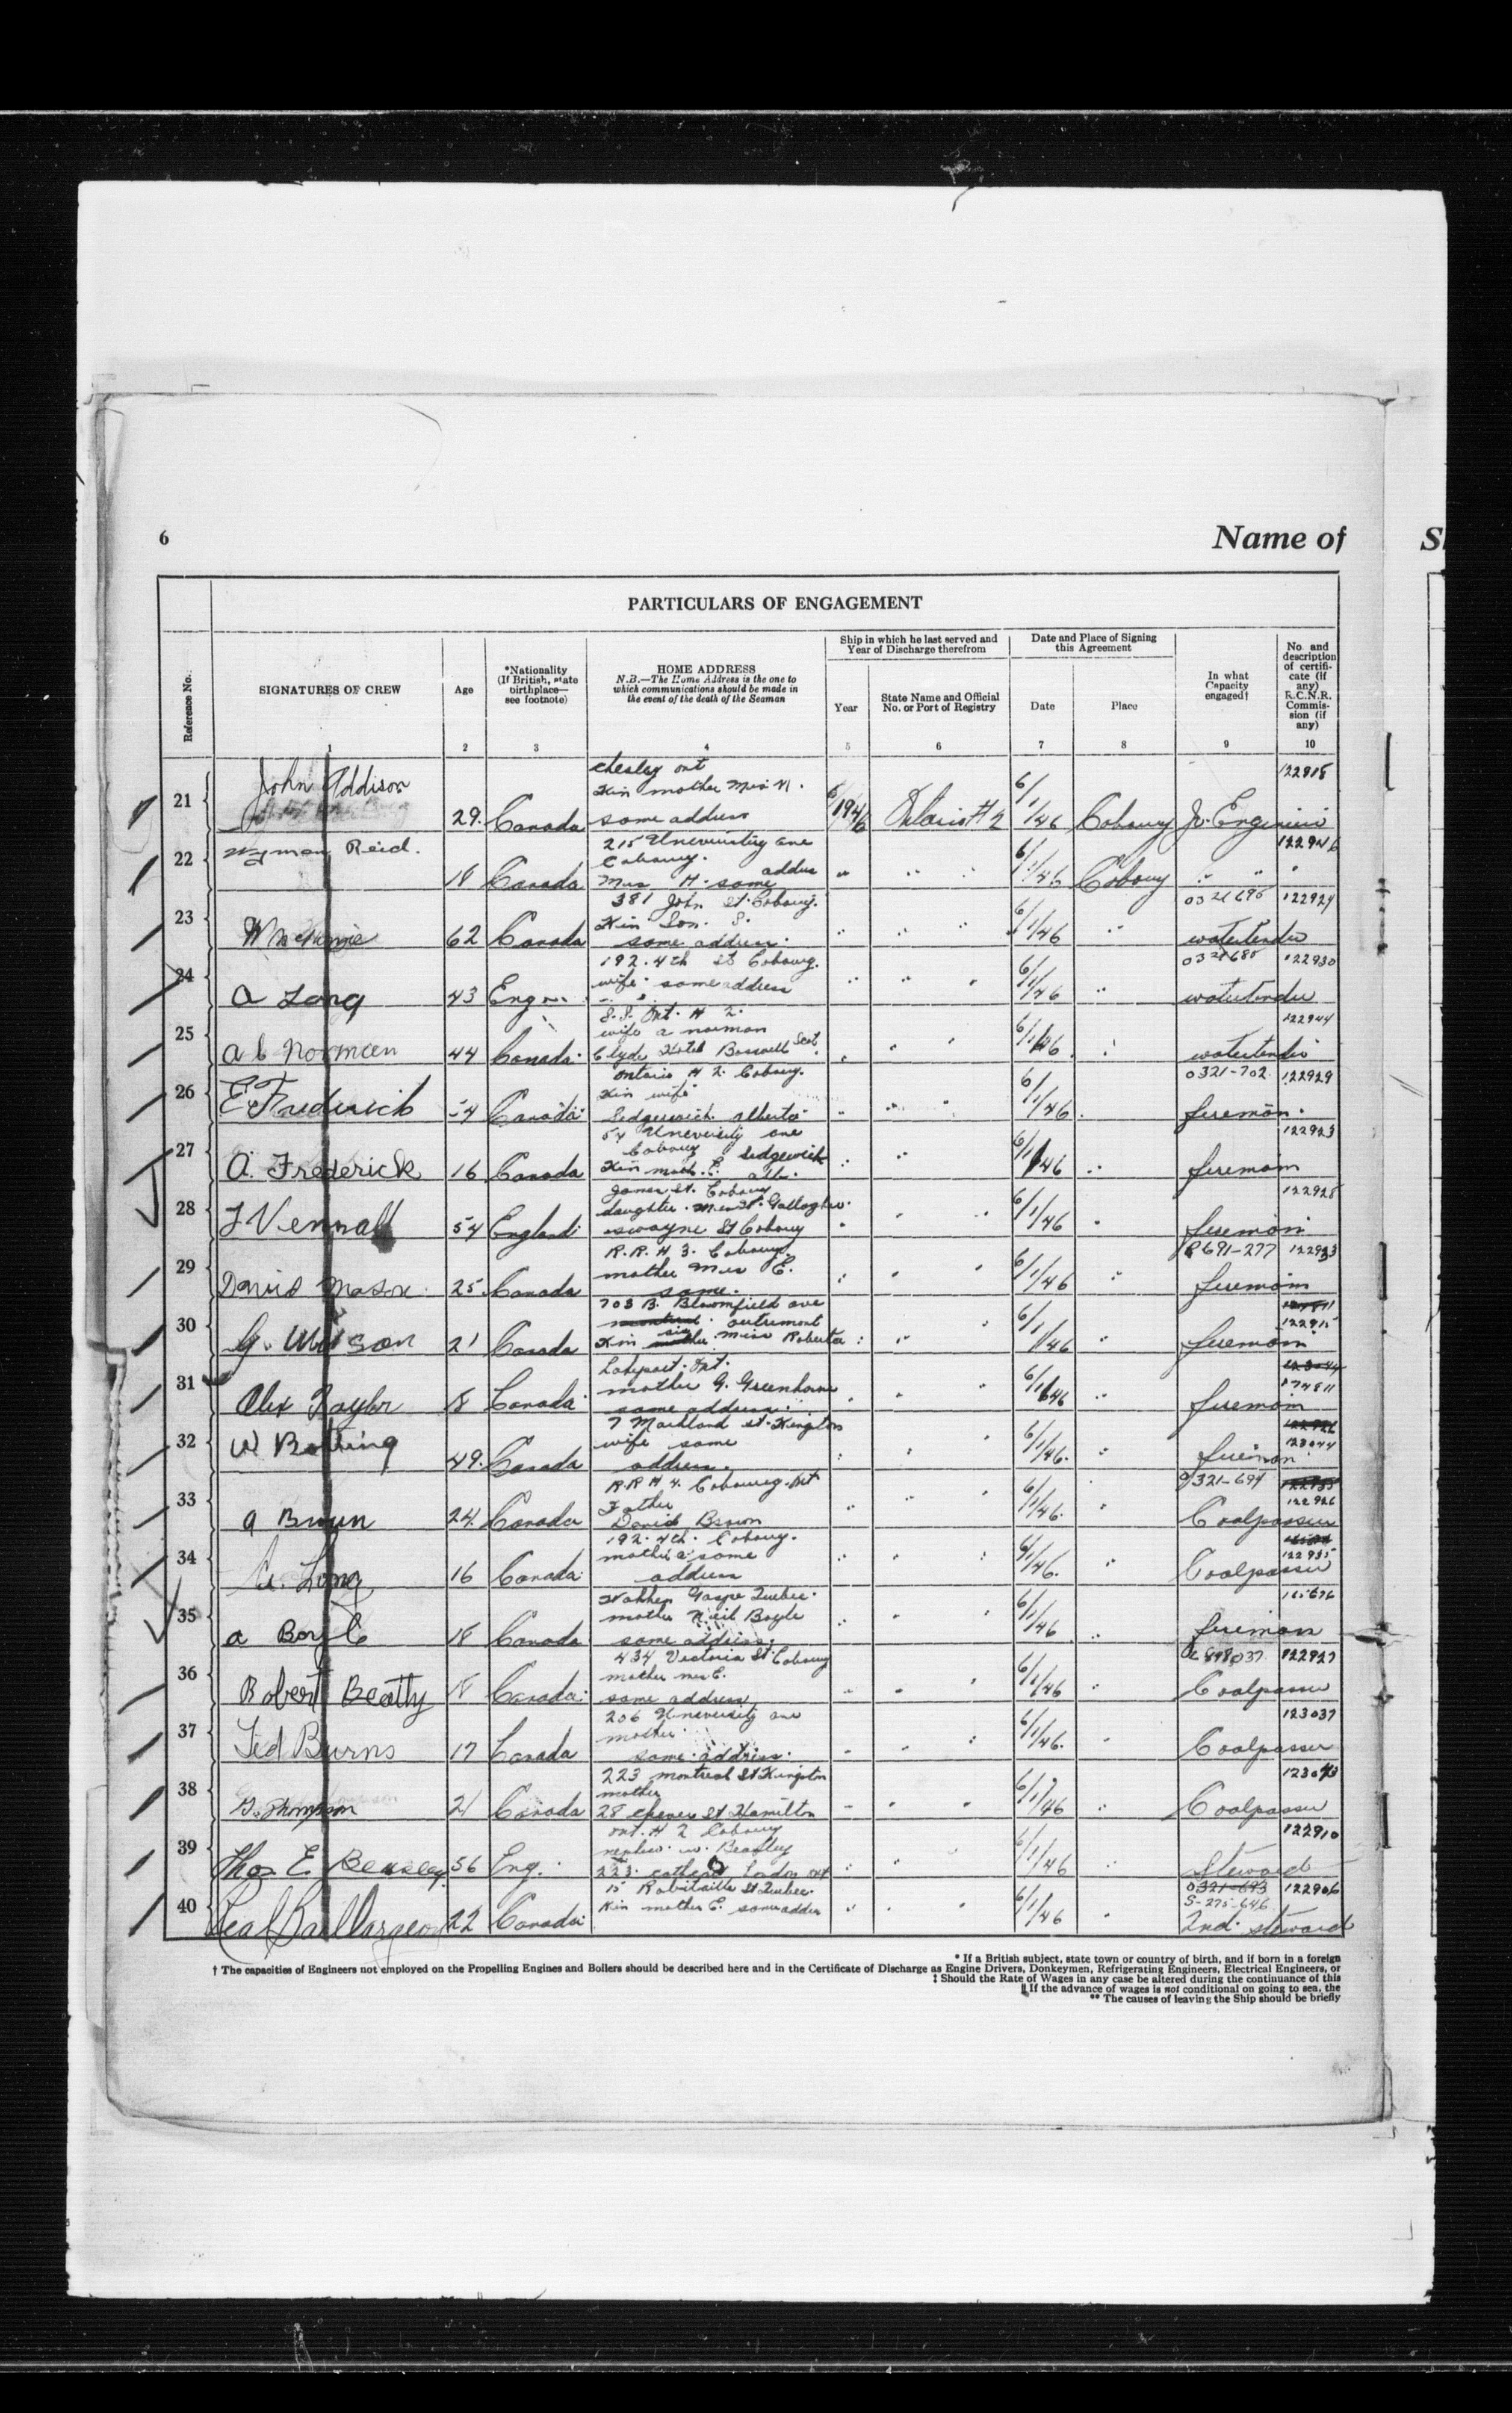 6
Name of
S
PARTICULARS OF ENGAGEMENT
Reference No.
SIGNATURES OF CREW
Age
*Nationality
(If British, state
birthplace—
see footnote)
HOME ADDRESS
N.B.—The Home Address is the one to
which communications should be made in
the event of the death of the Seaman
Ship in which he last served and
Year of Discharge therefrom
Year
State Name and Official
No. or Port of Registry
Date and Place of Signing
this Agreement
Date
Place
In what
Capacity
engaged†
No. and
description
of certifi-
cate (if
any)
R.C.N.R.
Commis-
sion (if
any)
1 2 3 4 5 6 7 8 9 10
21 John Addison 29. Canada
chesley ont
Kin mother
same address
1946 6/1/46 Cobourg Jr. Engineer
122918
22 Wyman Reid. 18 Canada
215 University ave
Cobourg.
Mrs H. same address
6/1/46 Cobourg " "
122946
23 62 Canada
381 John St. Cobourg.
Kin Son. S.
same address.
6/1/46 " watertender
0321695 122924
24 A Long 43 Eng
192. 4th St Cobourg.
wife. same address
6/1/46 " watertender
0321685 122930
25 A C Norman 44 Canada
S.S. Ont. # 2.
wife a norman
Clyde Hotel Scot.
6/1/46 watertender
122944
26 E Frederick 54 Canada
Ontario # 2. Cobourg.
Kin wife
Sedgewick. Alberta
6/1/46. fireman.
0321-702 122929
27 A. Frederick 16 Canada
54 University ave
Cobourg
Kin moth. E. Sedgewick alb.
6/1/46 fireman
122923
28 54 England
James St. Cobourg
daughter. Gallagher.
swayne St Cobourg
6/1/46 fireman
122928
29 David 25. Canada
R.R. # 3. Cobourg.
mother Mrs E.
same.
6/1/46 fireman
R691-277 122933
30 G. Wilson 21 Canada
703 B. Bloomfield ave
outremont
Kin sis miss Roberta
6/1/46 fireman
122915
31 Alex Taylor 18 Canada
Lakeport. Ont.
mother G. Greenhorn
same address.
6/1/46 fireman
32 49. Canada
7 Markland st. Kingston
wife same
address.
6/1/46. fireman
123044
33 24. Canada
R.R # 4. Cobourg. Ont
Father
David Brown
6/1/46. Coalpasser
0321-694
122926
34 A. Long 16 Canada
192. 4th. Cobourg.
mother a. same
address
6/1/46. Coalpasser
122935
35 a Boyle 18 Canada
Gaspe Quebec.
mother Neil Boyle
same address.
6/1/46 fireman
36 Robert Beatty 18 Canada
434 Victoria St. Cobourg
mother mrs E.
same address
6/1/46 Coalpasser
122927
37 Ted Burns 17 Canada
206 University ave
mother
same address.
6/1/46. Coalpasser
123037
38 G. Thompson 21 Canada
223 montreal St Kingston
mother
28 St Hamilton
6/1/46 Coalpasser
123043
39 Thos E. Beasley 56 Eng.
ont. # 2 Cobourg
nephew. w. Beasley
223. London ont
6/1/46 Steward
122910
40 22 Canada
15 Robitaille St Quebec.
Kin mother E. same addres
6/1/46 2nd. steward
0321-693 122906
S-275-646
* If a British subject, state town or country of birth, and if born in a foreign
† The capacities of Engineers not employed on the Propelling Engines and Boilers should be described here and in the Certificate of Discharge as Engine Drivers, Donkeymen, Refrigerating Engineers, Electrical Engineers, or
‡ Should the Rate of Wages in any case be altered during the continuance of this
|| If the advance of wages is not conditional on going to sea, the
** The causes of leaving the Ship should be briefly